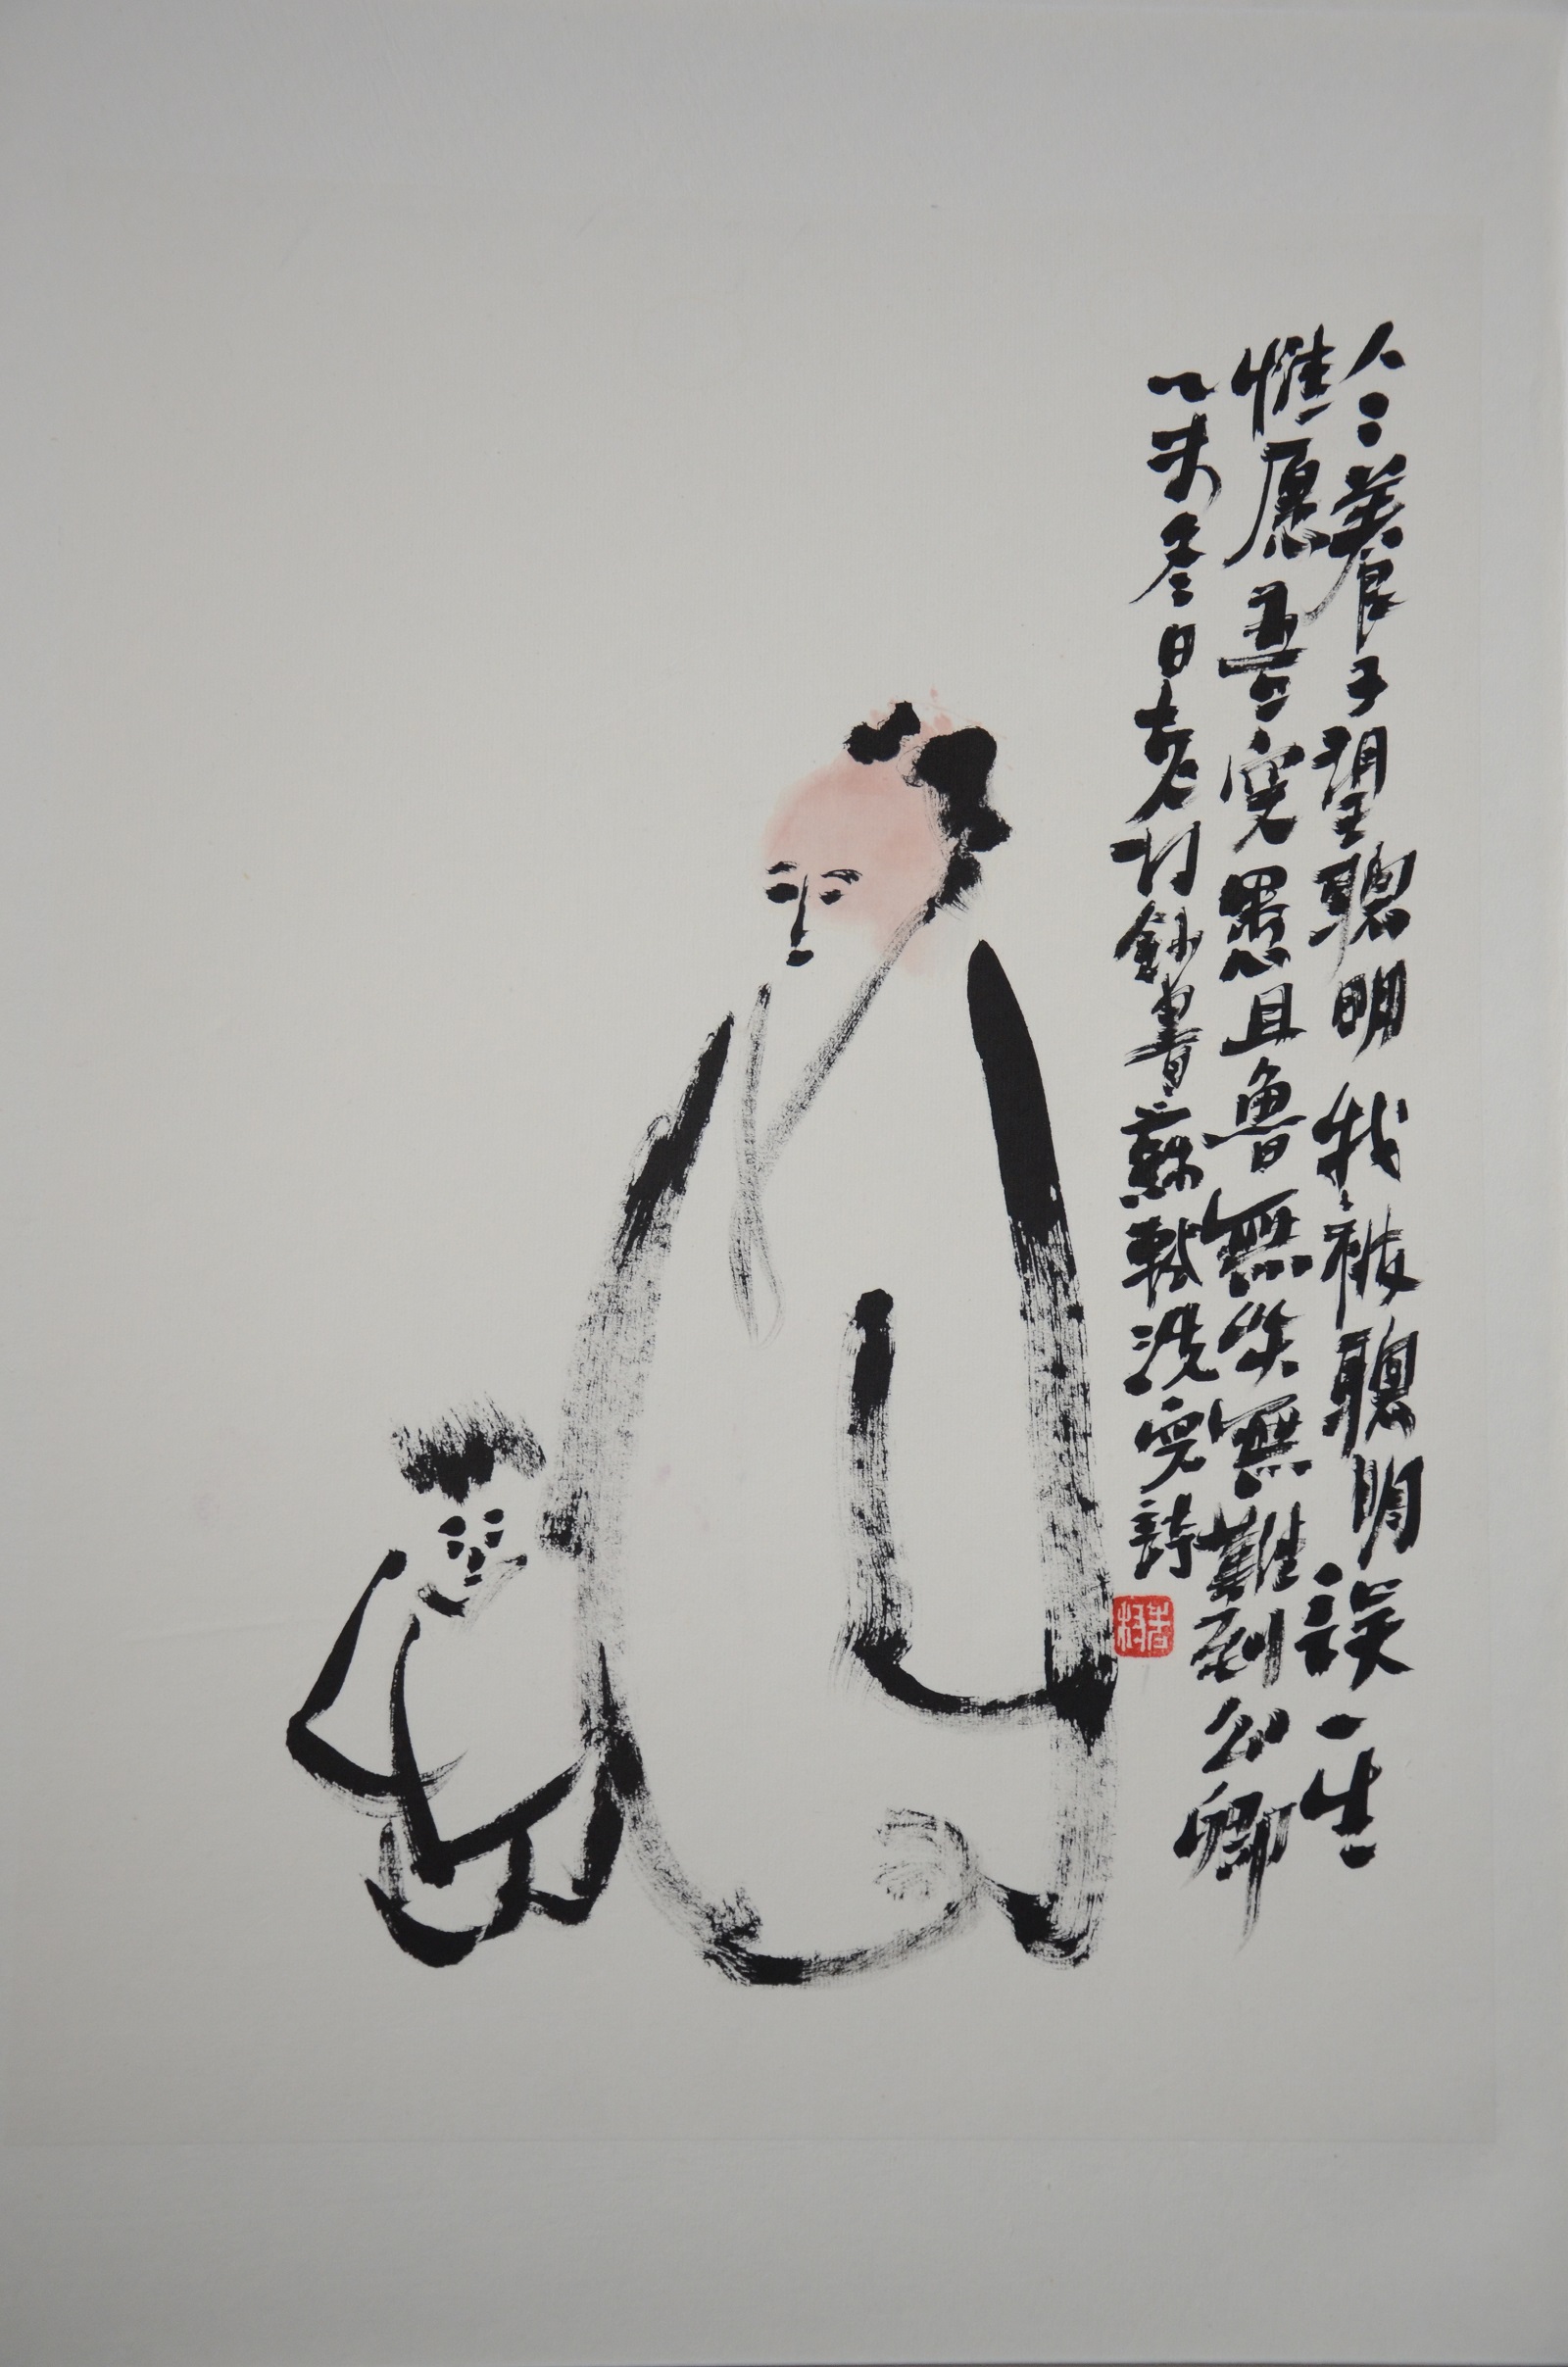 人々養子望聰明我被聰明誤一生
惟愿吾兒愚且魯無災無難到公卿
乙未冬日老村鈔書蘇軾洗兒詩
老村